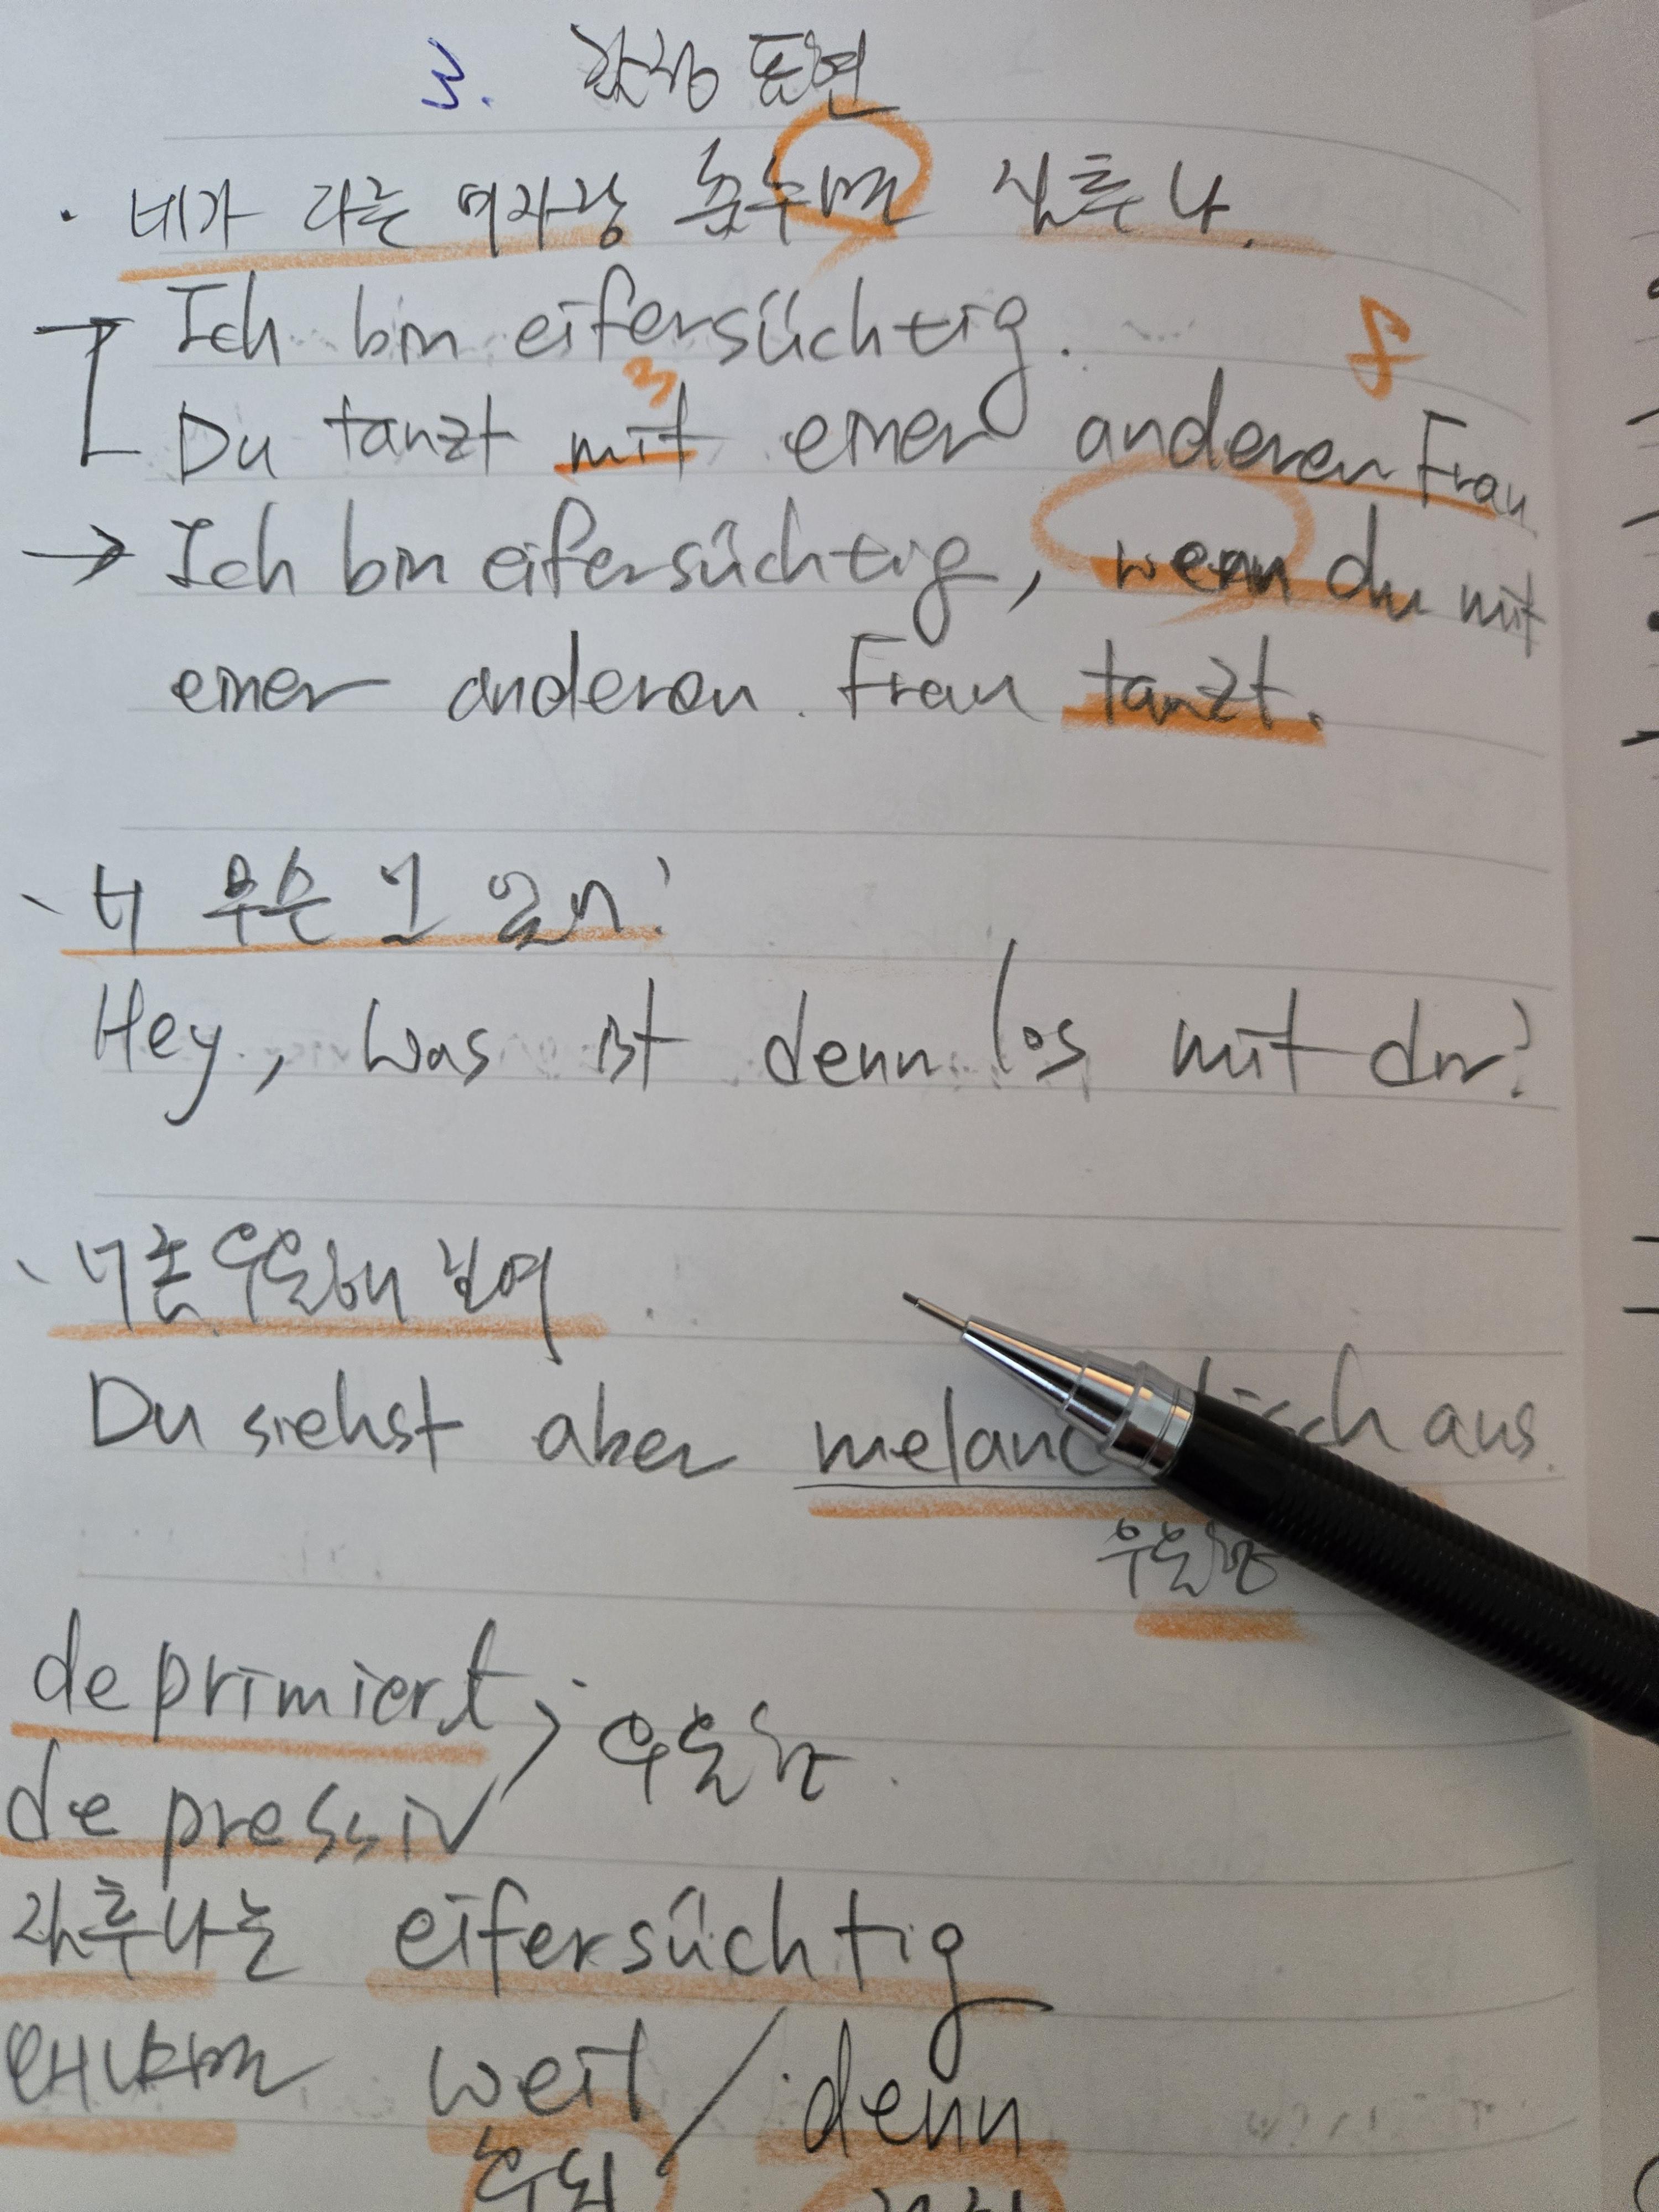 3. 감정 표현
· 네가 다른 여자랑 춤추면 질투나.
Ich bin eifersüchtig. f
3
Du tanzt mit einer anderen Frau
→ Ich bin eifersüchtig, wenn du mit
einer anderen Frau tanzt.
너 무슨 일 있니?
Hey, was ist denn los mit dir?
너 좀 우울해 보여
Du siehst aber aus.
deprimiert
우울한
depressiv
질투나는 eifersüchtig
왜냐하면 weil / denn